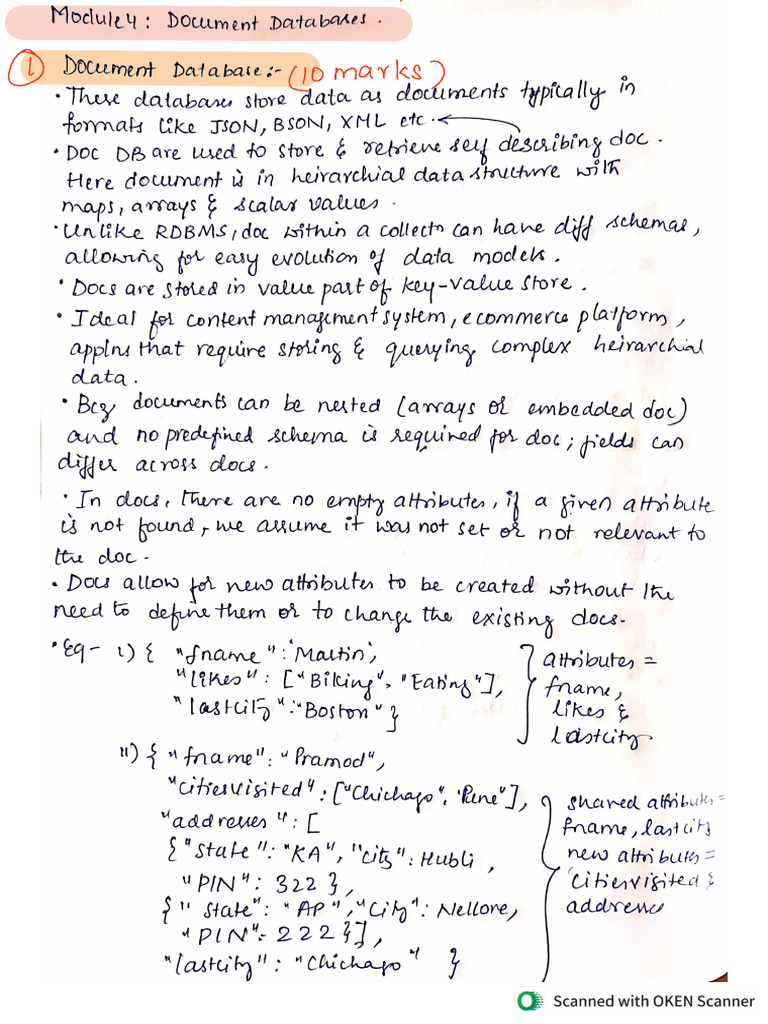 Module 4 : Document Databases .
1 Document Database:- (10 marks)
• These databases store data as documents typically in
formats like JSON, BSON, XML etc.
• Doc DB are used to store & retrieve self describing doc .
Here document is in heirarchial data structure with
maps, arrays & scalar values .
• Unlike RDBMS, doc within a collectn can have diff schemas,
allowing for easy evolution of data models.
• Docs are stored in value part of key-value store .
• Ideal for content management system, ecommerce platform,
applns that require storing & querying complex heirarchial
data.
• Bcz documents can be nested (arrays or embedded doc)
and no predefined schema is required for doc; fields can
differ across docs.
• In docs, there are no empty attributes, if a given attribute
is not found, we assume it was not set or not relevant to
the doc.
• Docs allow for new attributes to be created without the
need to define them or to change the existing docs.
• Eg- i) { "fname" : 'Martin',
"likes" : ["Biking", "Eating"],
"lastcity" : "Boston" }
attributes =
fname,
likes &
lastcity
ii) { "fname" : "Pramod",
"citiesvisited" : ["Chichago", "Pune"],
"addresses" : [
{ "state" : "KA", "city" : Hubli ,
"PIN" : 322 },
{ "state" : "AP", "City" : Nellore,
"PIN" : 222 }],
"lastcity" : "Chichago" }
shared attributes =
fname, lastcity
new attributes =
citiesvisited &
address
Scanned with OKEN Scanner